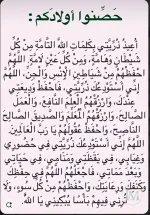 حصّنوا أولادكم :
أُعِيذُ ذُرِّيَّتِي بِكَلِمَاتِ اللَّهِ التَّامَّةِ مِنْ كُلِّ
شَيْطَانٍ وَهَامَّةٍ، وَمِنْ كُلِّ عَيْنٍ لَامَّةٍ، اللَّهُمَّ
احْفَظْهُمْ مِنْ شَيَاطِينِ الْإِنْسِ وَالْجِنِّ، اللَّهُمَّ
إِنِّي أَسْتَوْدِعُكَ ذُرِّيَّتِي، فَاحْفَظْ وَدِيعَتِي
عِنْدَكَ، وَارْزُقْهُمُ الْعِلْمَ النَّافِعَ، وَالْعَمَلَ
الصَّالِحَ، وَارْزُقْهُمُ الْمُعَلِّمَ وَالصَّدِيقَ الصَّالِحَ
النَّاصِحَ، وَاحْفَظْ عُقُولَهُمْ يَا رَبَّ الْعَالَمِينَ.
اللَّهُمَّ إِنِّي أَسْتَوْدِعُكَ ذُرِّيَّتِي فِي حُضُورِي
وَغِيَابِي، فِي يَقَظَتِي وَمَنَامِي، فِي حَيَاتِي
وَبَعْدَ مَمَاتِي، فَاجْعَلْهُمُ اللَّهُمَّ فِي حِفْظِكَ
وَكَنَفِكَ وَرِعَايَتِكَ، وَاحْفَظْهُمْ مِنْ كُلِّ سُوءٍ، وَلَا
تُرِنِي فِيهِمْ بَأْسًا يُبْكِينِي يَا اللَّهُ.